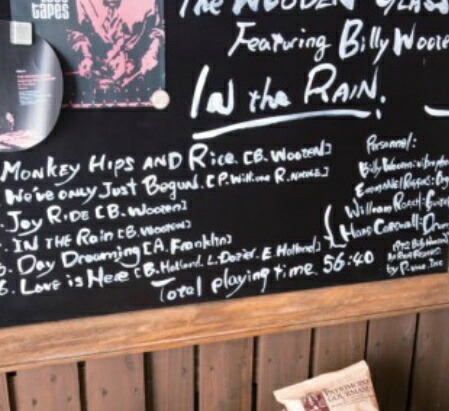 tapes
The WOODEN GLASS
Featuring Billy Wooten
IN the RAIN.
MONKEY HIPS AND RICE [B. WOOTEN]
We've only Just Begun. [P. Williams R. Nichols]
Joy RIDE [B. WOOTEN]
IN THE RAIN [B. WOOTEN]
Day Dreaming [A. Franklin]
6. Love is Here [B. Holland. L. Dozier. E. Holland]
Total playing time 56:40
Personnel:
Billy Wooten: vibraphone
Emmanuel Riggins: Org
William Roach: Guitar
Hans Cornwall: Drum
by P-vine. Inc
GOURMAND